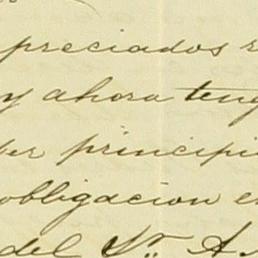 preciados
y ahora teng
der principi
obligacion e
del Sr. A.